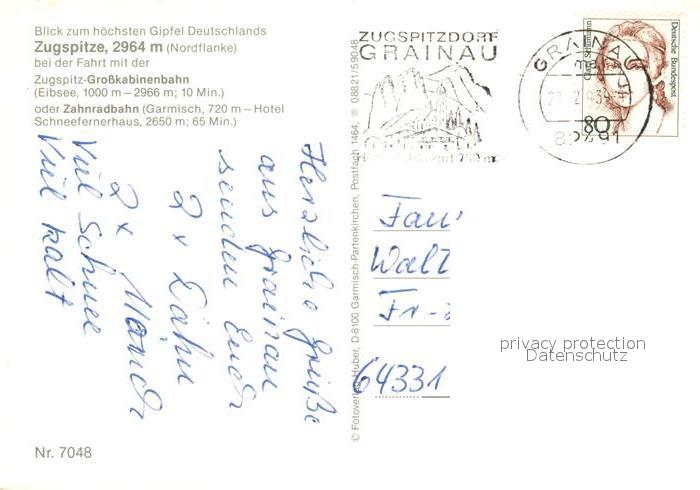 Blick zum höchsten Gipfel Deutschlands
Zugspitze, 2964 m (Nordflanke)
bei der Fahrt mit der
Zugspitz-Großkabinenbahn
(Eibsee, 1000 m – 2966 m; 10 Min.)
oder Zahnradbahn (Garmisch, 720 m – Hotel
Schneefernerhaus, 2650 m; 65 Min.)
Herzliche Grüße
aus Grainau
senden Euch
2 x
2 x
Viel Schnee
Viel kalt
Nr. 7048
© Fotoverlag Huber, D-8100 Garmisch-Partenkirchen, Postfach 1464, ☎ 08821/59048
ZUGSPITZDORF
GRAINAU
750 m
GRAINAU
82491
Deutsche Bundespost
80
Fam
Walt
Fr-
64331
privacy protection
Datenschutz